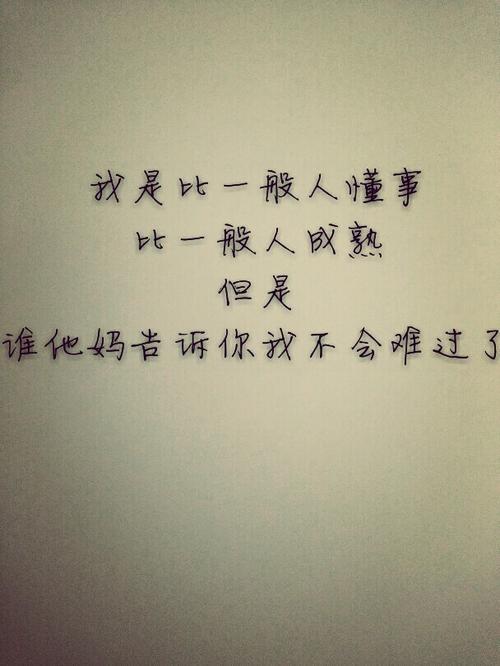 我是比一般人懂事
比一般人成熟
但是
谁他妈告诉你我不会难过了